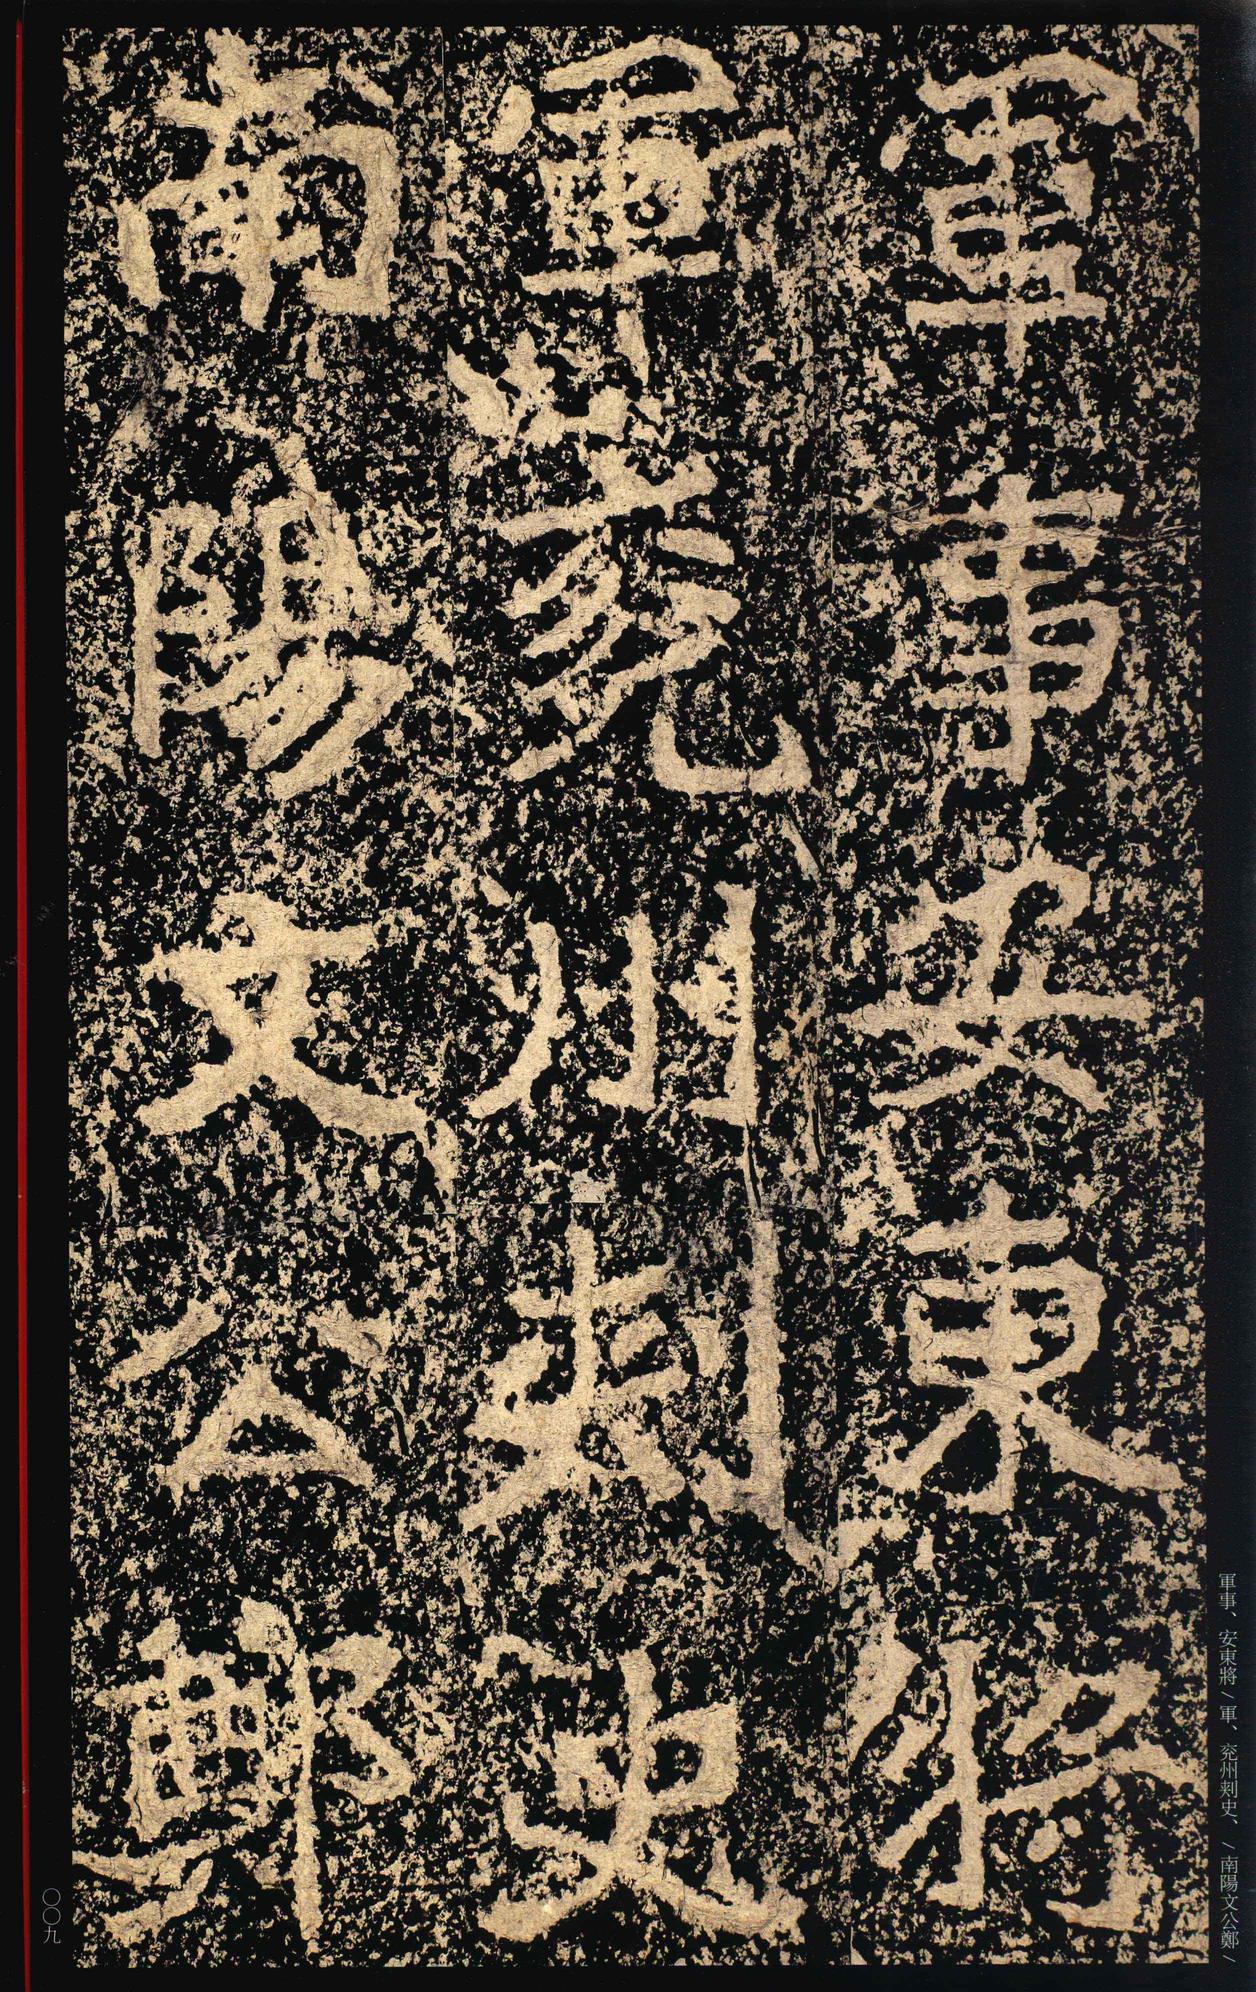 軍事安東將
軍兗州刾史
南陽文公鄭
軍事、安東將／軍、兗州刾史、／南陽文公鄭／
〇〇九